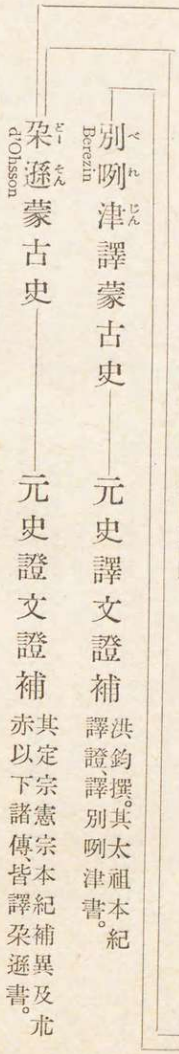 別咧津譯蒙古史
べれじん
Berezin
元史譯文證補
洪鈞撰。其太祖本紀
譯證、譯別咧津書。
朶遜蒙古史
どーそん
d'Ohsson
元史證文證補
其定宗憲宗本紀補異及朮
赤以下諸傳、皆譯朶遜書。